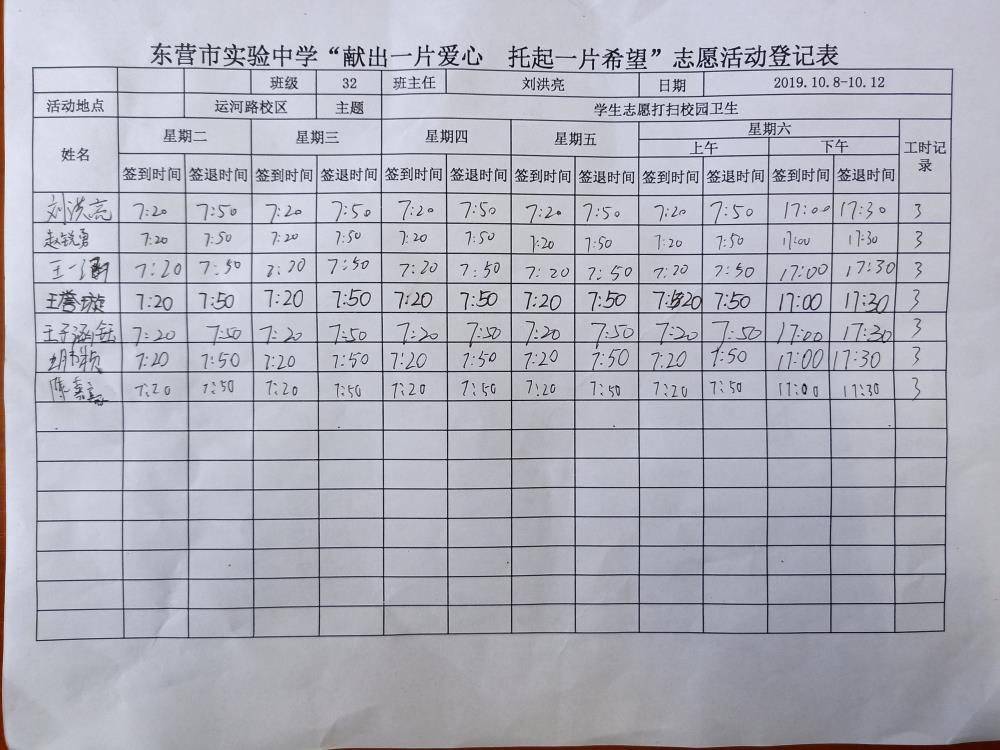 东营市实验中学“献出一片爱心 托起一片希望”志愿活动登记表
班级 32 班主任 刘洪亮 日期 2019.10.8-10.12
活动地点 运河路校区 主题 学生志愿打扫校园卫生
姓名 星期二 星期三 星期四 星期五 星期六 工时记录
上午 下午
签到时间 签退时间 签到时间 签退时间 签到时间 签退时间 签到时间 签退时间 签到时间 签退时间 签到时间 签退时间
刘洪亮 7:20 7:50 7:20 7:50 7:20 7:50 7:20 7:50 7:20 7:50 17:00 17:30 3
赵锐勇 7:20 7:50 7:20 7:50 7:20 7:50 7:20 7:50 7:20 7:50 17:00 17:30 3
王一 7:20 7:50 7:20 7:50 7:20 7:50 7:20 7:50 7:20 7:50 17:00 17:30 3
王誉璇 7:20 7:50 7:20 7:50 7:20 7:50 7:20 7:50 7:20 7:50 17:00 17:30 3
王子涵钰 7:20 7:50 7:20 7:50 7:20 7:50 7:20 7:50 7:20 7:50 17:00 17:30 3
7:20 7:50 7:20 7:50 7:20 7:50 7:20 7:50 7:20 7:50 17:00 17:30 3
陈嘉 7:20 7:50 7:20 7:50 7:20 7:50 7:20 7:50 7:20 7:50 17:00 17:30 3